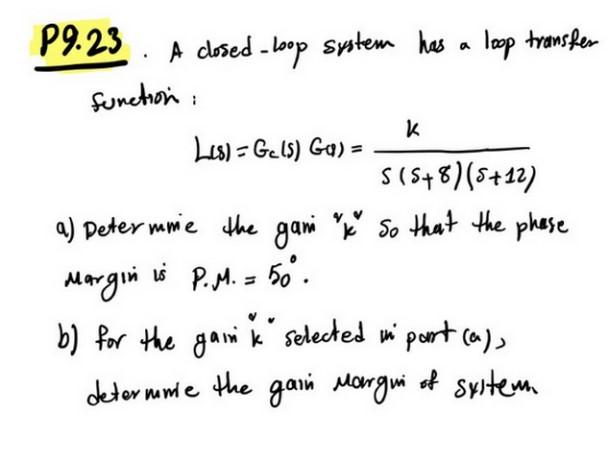 P9.23 . A closed-loop system has a loop transfer
function :
L(s) = Gc(s) G(s) = K / S(S+8)(S+12)
a) Determine the gain "k" so that the phase
Margin is P.M. = 50°.
b) for the gain "k" selected in part (a),
determine the gain Margin of system